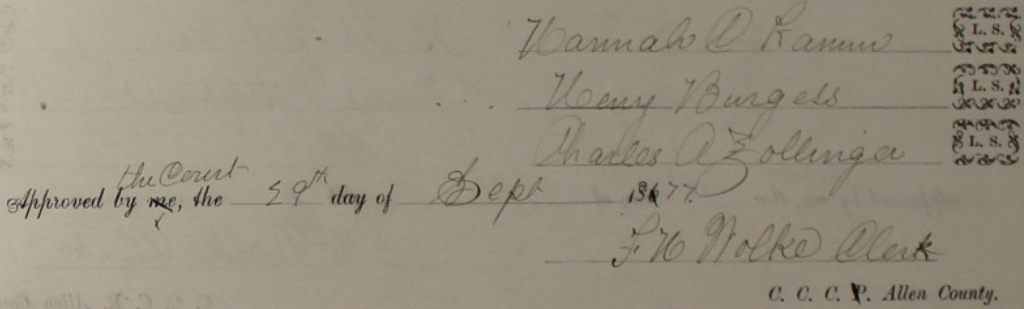 Hannah D Ramm L. S.
Henry Burgess L. S.
Charles A Zollinger L. S.
the Court
Approved by me, the 29th day of Sept 1877.
F. W Wolke Clerk
C. C. C. P. Allen County.